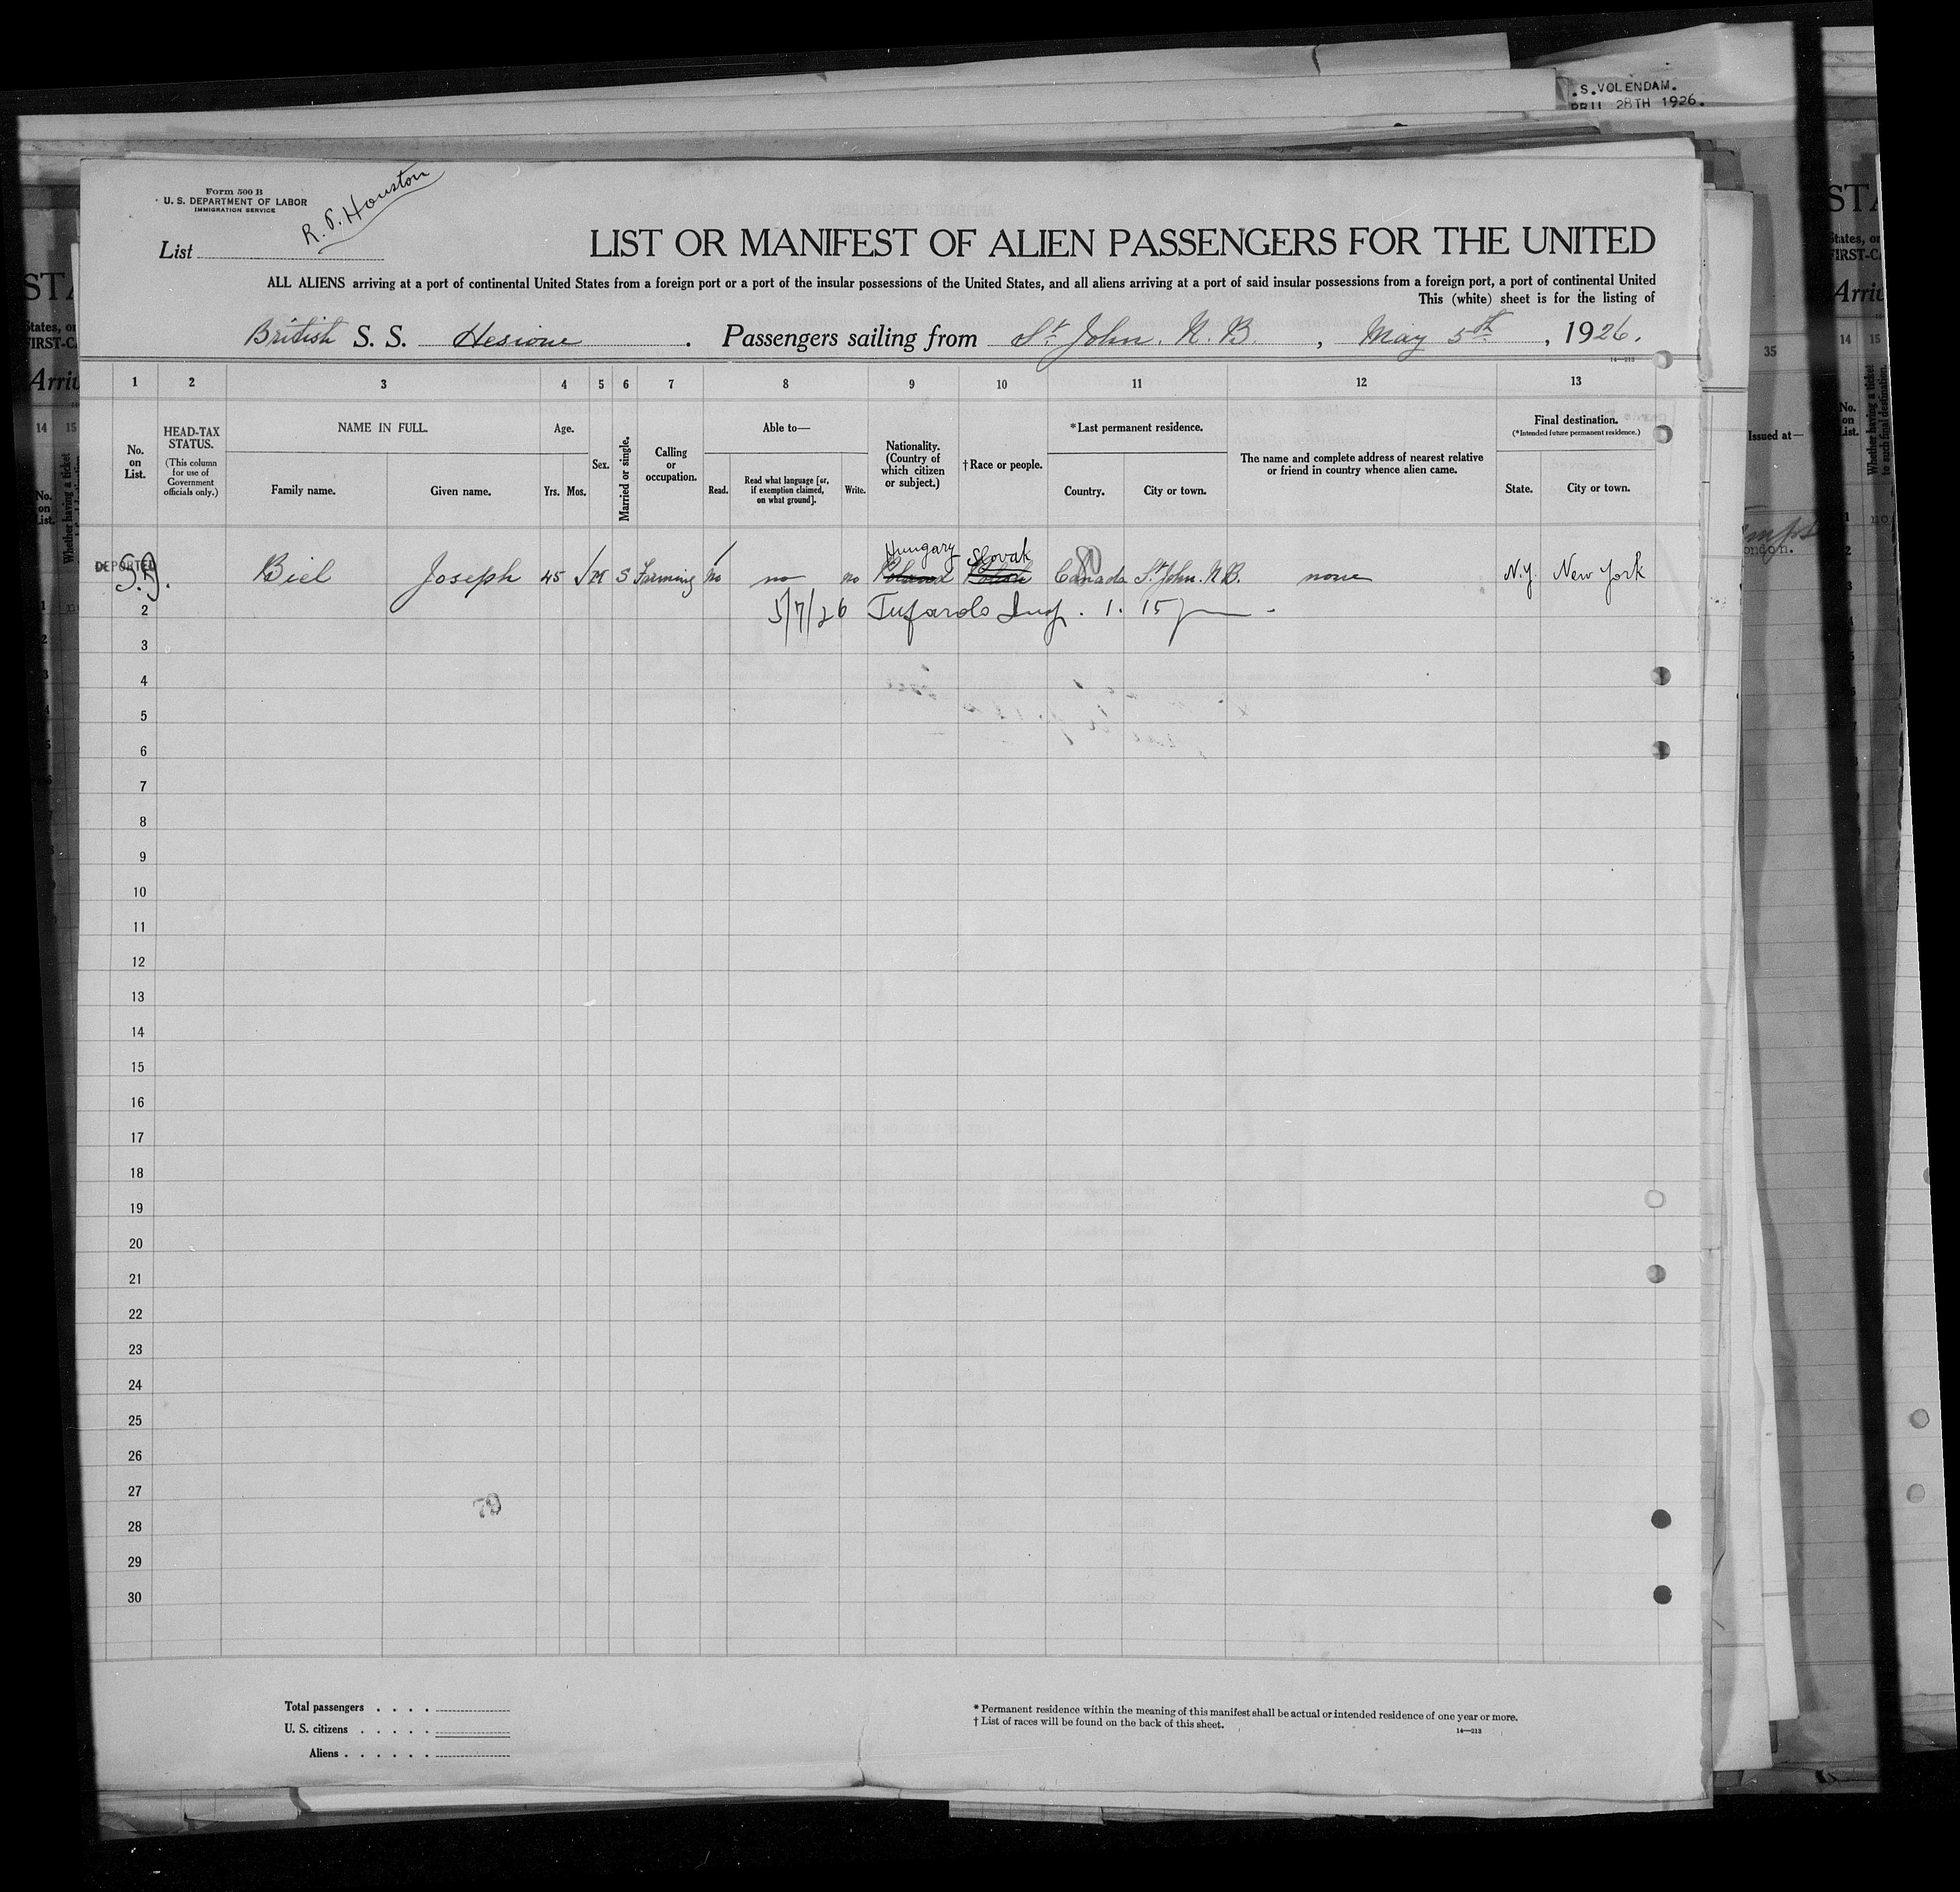 .S.VOLENDAM.
PRIL 28TH 1926.
Form 500 B
U. S. DEPARTMENT OF LABOR
IMMIGRATION SERVICE
R. P. Houston
List
LIST OR MANIFEST OF ALIEN PASSENGERS FOR THE UNITED
ALL ALIENS arriving at a port of continental United States from a foreign port or a port of the insular possessions of the United States, and all aliens arriving at a port of said insular possessions from a foreign port, a port of continental United
This (white) sheet is for the listing of
British S. S. Hesione . Passengers sailing from St. John. N. B. , May 5th , 1926.
14—213
1 2 3 4 5 6 7 8 9 10 11 12 13
No. on List.
HEAD-TAX STATUS.
(This column for use of Government officials only.)
NAME IN FULL.
Family name. Given name.
Age.
Yrs. Mos.
Sex.
Married or single.
Calling or occupation.
Able to—
Read. Read what language [or, if exemption claimed, on what ground]. Write.
Nationality. (Country of which citizen or subject.)
†Race or people.
*Last permanent residence.
Country. City or town.
The name and complete address of nearest relative or friend in country whence alien came.
Final destination.
(*Intended future permanent residence.)
State. City or town.
Hungary Slovak
DEPORTED
Biel Joseph 45 M S Farming no no no Poland Polish Canada St. John. N.B. none N.Y. New York
2 5/7/26 Tufarolo Insp. 1. 15
3
4
5
6
7
8
9
10
11
12
13
14
15
16
17
18
19
20
21
22
23
24
25
26
27
28
29
30
79
Total passengers
U. S. citizens
Aliens
* Permanent residence within the meaning of this manifest shall be actual or intended residence of one year or more.
† List of races will be found on the back of this sheet.
14—213
35
Issued at—
ondon.
STA
States, or
FIRST-C
Arriv
14 15
No. on List.
Whether having a ticket to such final destination.
no